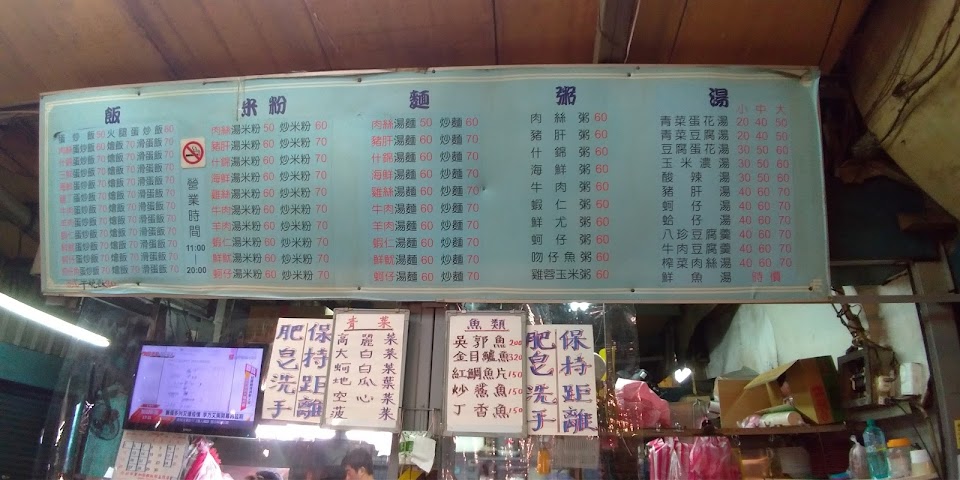 飯
蛋炒飯 50 火腿蛋炒飯 60
肉絲蛋炒飯 60 燴飯 70 滑蛋飯 70
什錦蛋炒飯 70 燴飯 70 滑蛋飯 70
蛋炒飯 70 燴飯 70 滑蛋飯 70
海鮮蛋炒飯 70 燴飯 70 滑蛋飯 70
蛋炒飯 70 燴飯 70 滑蛋飯 70
牛肉蛋炒飯 70 燴飯 70 滑蛋飯 70
羊肉蛋炒飯 70 燴飯 70 滑蛋飯 70
蝦仁蛋炒飯 70 燴飯 70 滑蛋飯 70
蛋炒飯 70 燴飯 70 滑蛋飯 70
蛋炒飯 70 燴飯 70 滑蛋飯 70
營業時間
11:00
|
20:00
米粉
肉絲湯米粉 50 炒米粉 60
豬肝湯米粉 60 炒米粉 70
什錦湯米粉 60 炒米粉 70
海鮮湯米粉 60 炒米粉 70
雞絲湯米粉 60 炒米粉 70
牛肉湯米粉 60 炒米粉 70
羊肉湯米粉 60 炒米粉 70
蝦仁湯米粉 60 炒米粉 70
鮮魷湯米粉 60 炒米粉 70
蚵仔湯米粉 60 炒米粉 70
麵
肉絲湯麵 50 炒麵 60
豬肝湯麵 60 炒麵 70
什錦湯麵 60 炒麵 70
海鮮湯麵 60 炒麵 70
雞絲湯麵 60 炒麵 70
牛肉湯麵 60 炒麵 70
羊肉湯麵 60 炒麵 70
蝦仁湯麵 60 炒麵 70
鮮魷湯麵 60 炒麵 70
蚵仔湯麵 60 炒麵 70
粥
肉絲粥 60
豬肝粥 60
什錦粥 60
海鮮粥 60
牛肉粥 60
蝦仁粥 60
鮮尤粥 60
蚵仔粥 60
吻仔魚粥 60
雞蓉玉米粥 60
湯
小 中 大
青菜蛋花湯 20 40 50
青菜豆腐湯 20 40 50
豆腐蛋花湯 30 50 60
玉米濃湯 30 50 60
酸辣湯 30 50 60
豬肝湯 40 60 70
蚵仔湯 40 60 70
蛤仔湯 40 60 70
八珍豆腐羹 40 60 70
牛肉豆腐羹 40 60 70
榨菜肉絲湯 40 60 70
鮮魚湯 時價
保持距離
肥皂洗手
青菜
高麗菜
大白菜
蚵白菜
地瓜葉
空心菜
菠菜
魚類
吳郭魚 200
金目鱸魚 320
紅鯛魚片 150
炒魚 150
丁香魚 150
保持距離
肥皂洗手